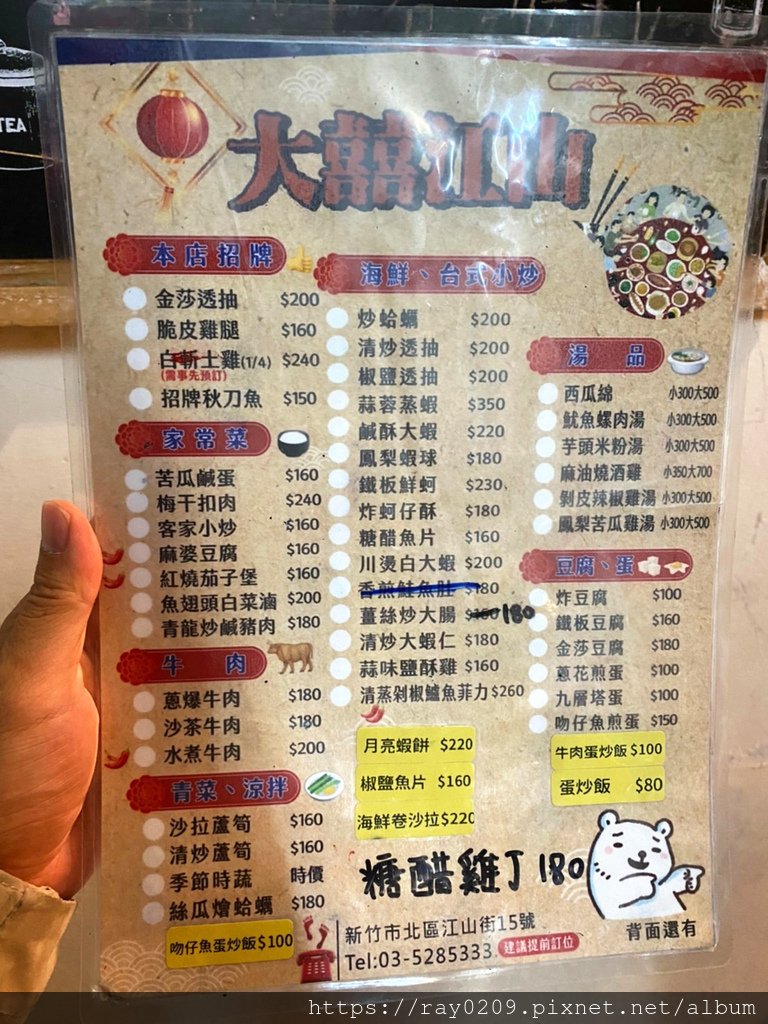 TEA
大囍江山
本店招牌
金莎透抽 $200
脆皮雞腿 $160
白斬土雞(1/4) $240
(需事先預訂)
招牌秋刀魚 $150
家常菜
苦瓜鹹蛋 $160
梅干扣肉 $240
客家小炒 $160
麻婆豆腐 $160
紅燒茄子堡 $160
魚翅頭白菜滷 $200
青龍炒鹹豬肉 $180
牛肉
蔥爆牛肉 $180
沙茶牛肉 $180
水煮牛肉 $200
青菜、涼拌
沙拉蘆筍 $160
清炒蘆筍 $160
季節時蔬 時價
絲瓜燴蛤蠣 $180
吻仔魚蛋炒飯$100
海鮮、台式小炒
炒蛤蠣 $200
清炒透抽 $200
椒鹽透抽 $200
蒜蓉蒸蝦 $350
鹹酥大蝦 $220
鳳梨蝦球 $180
鐵板鮮蚵 $230
炸蚵仔酥 $180
糖醋魚片 $160
川燙白大蝦 $200
香煎鮭魚肚 $180
薑絲炒大腸 $160 180
清炒大蝦仁 $180
蒜味鹽酥雞 $160
清蒸剁椒鱸魚菲力 $260
月亮蝦餅 $220
椒鹽魚片 $160
海鮮卷沙拉$220
湯品
西瓜綿 小300大500
魷魚螺肉湯 小300大500
芋頭米粉湯 小300大500
麻油燒酒雞 小350大700
剝皮辣椒雞湯 小300大500
鳳梨苦瓜雞湯 小300大500
豆腐、蛋
炸豆腐 $100
鐵板豆腐 $160
金莎豆腐 $180
蔥花煎蛋 $100
九層塔蛋 $100
吻仔魚煎蛋 $150
牛肉蛋炒飯 $100
蛋炒飯 $80
糖醋雞丁 180
背面還有
新竹市北區江山街15號
Tel:03-5285333
建議提前訂位
https://ray0209.pixnet.net/album